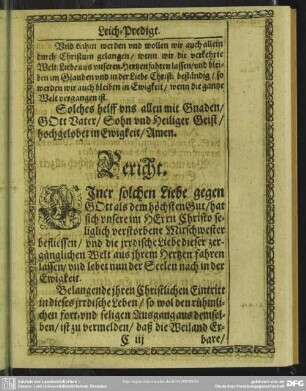 Leich-Predigt.
Vnd dahin werden vnd wollen wir auch allein
durch Christum gelangen / wenn wir die verkehrte
Welt Liebe aus vnserem Hertzen fahren lassen / vnd blei-
ben im Glauben vnd in der Liebe Christi beständig / so
werden wir auch bleiben in Ewigkeit / wenn die gantze
Welt vergangen ist.
Solches helff vns allen mit Gnaden /
GOtt Vater / Sohn vnd Heiliger Geist /
hochgelobet in Ewigkeit / Amen.
Bericht.
EIner solchen Liebe gegen
GOtt als dem höchsten Gut / hat
sich vnsere im HErrn Christo se-
liglich verstorbene Mitschwester
beflissen / vnd die jrrdische Liebe dieser zer-
gänglichen Welt aus ihrem Hertzen fahren
lassen / vnd lebet nun der Seelen nach in der
Ewigkeit.
Belangende ihren Christlichen Eintritt
in dieses jrrdische Leben / so wol den rühmli-
chen fort- vnd seligen Ausgang aus demsel-
ben / ist zu vermelden / daß die Weiland Er-
C iij
bare /